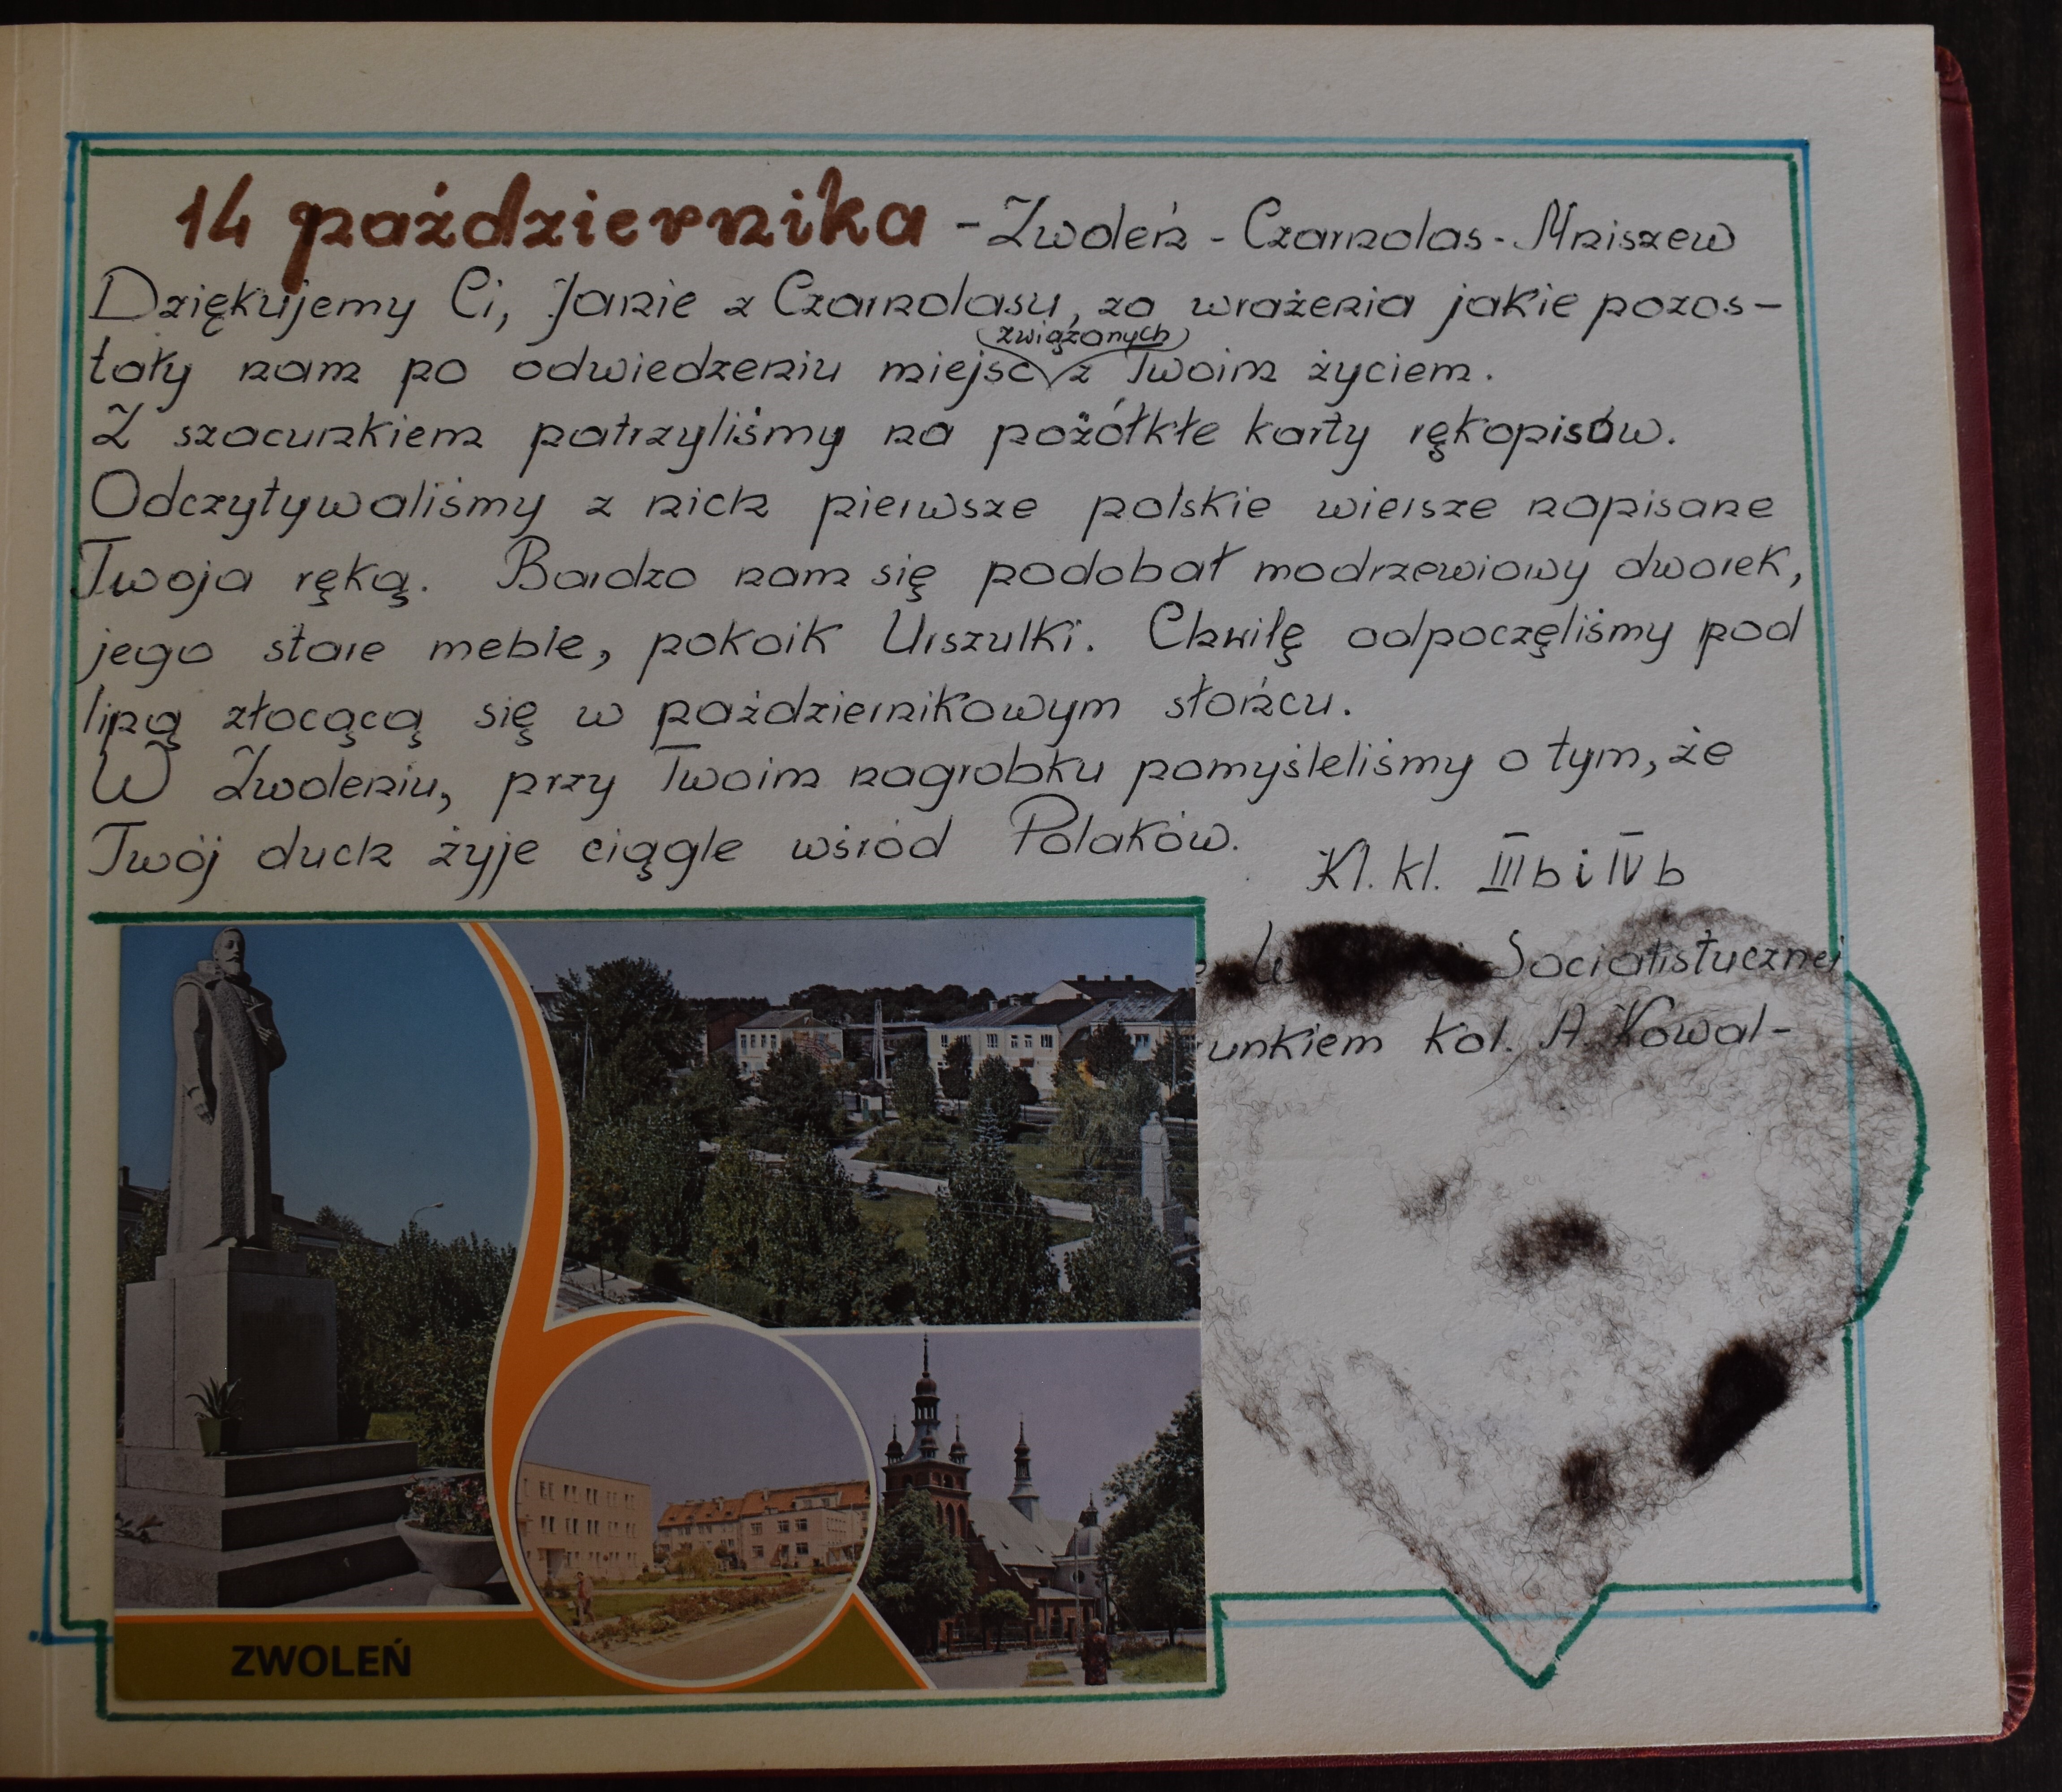 14 października - Zwoleń - Czarnolas - Mniszew
Dziękujemy Ci, Janie z Czarnolasu, za wrażenia jakie pozos-
tały nam po odwiedzeniu miejsc związanych z Twoim życiem.
Z szacunkiem patrzyliśmy na pożółkłe karty rękopisów.
Odczytywaliśmy z nich pierwsze polskie wiersze napisane
Twoja ręką. Bardzo nam się podobał modrzewiowy dworek,
jego stare meble, pokoik Urszulki. Chwilę odpoczęliśmy pod
lipą złocącą się w październikowym słońcu.
W Zwoleniu, przy Twoim nagrobku pomyśleliśmy o tym, że
Twój duch żyje ciągle wśród Polaków.
Kl. kl. III b i IV b
Socialistucznej
unkiem kol. A. Kowal-
ZWOLEŃ